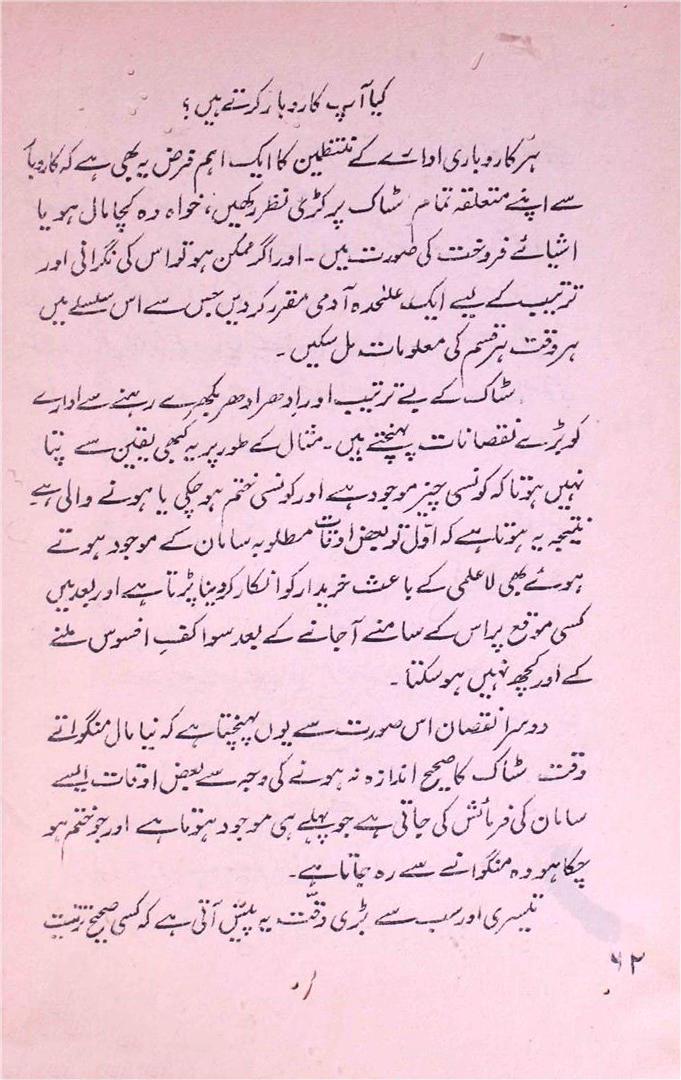 کیا آپ کاروبار کرتے ہیں ؟
ہر کاروباری ادارے کے منتظمین کا ایک اہم فرض یہ بھی ہے کہ کاروبار
سے اپنے متعلقہ تمام سٹاک پر کڑی نظر رکھیں، خواہ وہ کچا مال ہو یا
اشیائے فروخت کی صورت میں ۔ اور اگر ممکن ہو تو اس کی نگرانی اور
ترتیب کے لیے ایک علٰحدہ آدمی مقرر کر دیں جس سے اس سلسلے میں
ہر وقت ہر قسم کی معلومات مل سکیں ۔
سٹاک کے بے ترتیب اور ادھر ادھر بکھرے رہنے سے ادارے
کو بڑے نقصانات پہنچتے ہیں ۔ مثال کے طور پر یہ کبھی یقین سے پتا
نہیں ہوتا کہ کونسی چیز موجود ہے اور کونسی ختم ہو چکی یا ہونے والی ہے
نتیجہ یہ ہوتا ہے کہ اوّل تو بعض اوقات مطلوبہ سامان کے موجود ہوتے
ہوئے بھی لاعلمی کے باعث خریدار کو انکار کر دینا پڑتا ہے اور بعد میں
کسی موقع پر اس کے سامنے آ جانے کے بعد سوا کفِ افسوس ملنے
کے اور کچھ نہیں ہو سکتا ۔
دوسرا نقصان اس صورت سے یوں پہنچتا ہے کہ نیا مال منگواتے
وقت سٹاک کا صحیح اندازہ نہ ہونے کی وجہ سے بعض اوقات ایسے
سامان کی فرمائش کی جاتی ہے جو پہلے ہی موجود ہوتا ہے اور جو ختم ہو
چکا ہو وہ منگوانے سے رہ جاتا ہے۔
تیسری اور سب سے بڑی دقّت یہ پیش آتی ہے کہ کسی صحیح ترتیب
۶۲